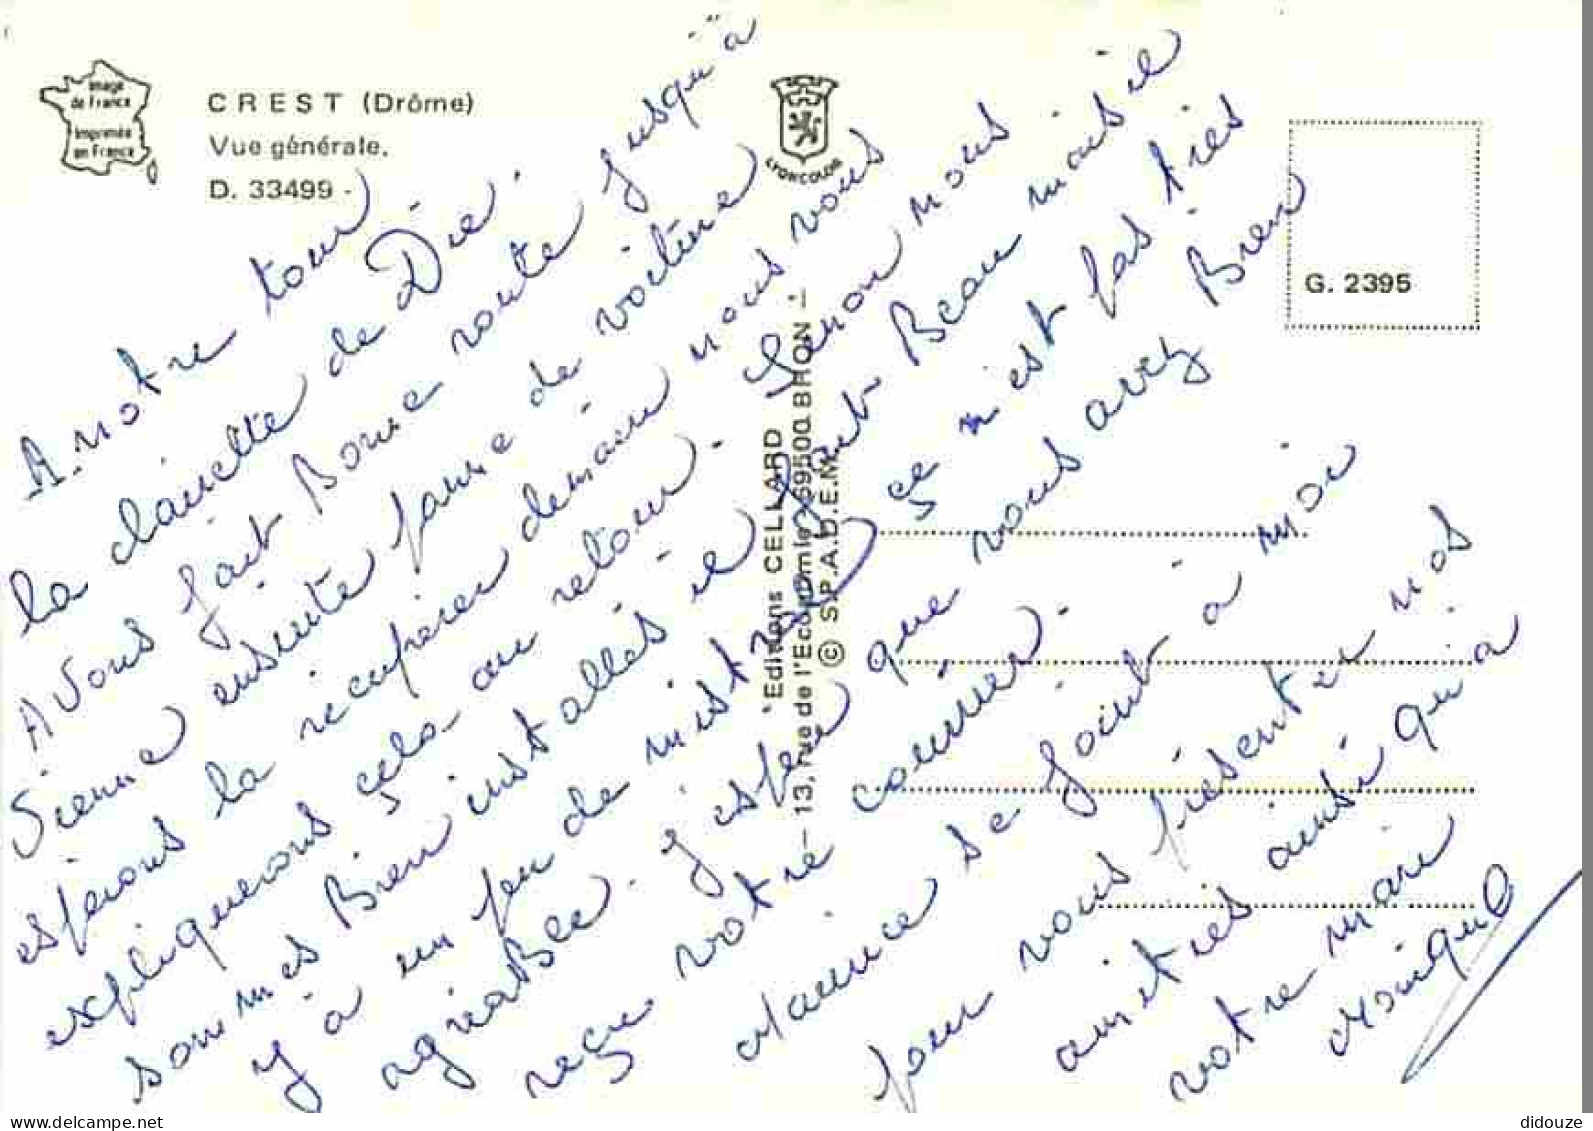 Image
de France
Imprimée
en France
CREST (Drôme)
Vue générale.
D. 33499 -
LYONCOLOR
G. 2395
"Editions CELLARD
— 13, rue de l'Economie 69500 BRON —
© S.P.A.D.E.M.
A notre tour
la clairette de Die.
Avons fait Bonne route jusqu'à
Sienne ensuite panne de voiture
espérons la récupérer demain nous vous
expliquerons cela au retour. Sinon nous
sommes Bien installés il fait Beau mais il
y à un peu de mistral ce n'est pas très
agréaBle. J'espère que vous avez Bien
reçu votre courrier.
se joint à moi
pour vous présenter nos
amitiés ainsi qu'à
votre mari
Monique
www.delcampe.net
didouze